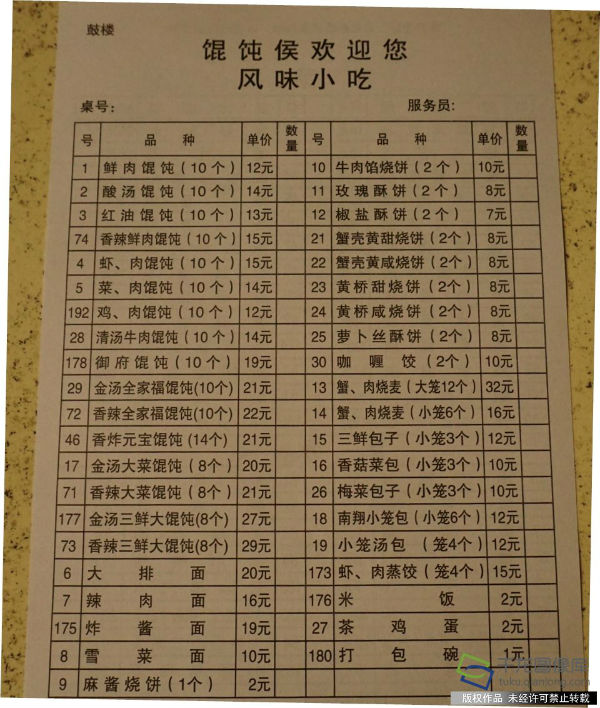 鼓楼
馄饨侯欢迎您
风味小吃
桌号： 服务员：
号 品种 单价 数量 号 品种 单价 数量
1 鲜肉馄饨（10个） 12元 10 牛肉馅烧饼（2个） 10元
2 酸汤馄饨（10个） 14元 11 玫瑰酥饼（2个） 8元
3 红油馄饨（10个） 13元 12 椒盐酥饼（2个） 7元
74 香辣鲜肉馄饨（10个） 15元 21 蟹壳黄甜烧饼（2个） 8元
4 虾、肉馄饨（10个） 15元 22 蟹壳黄咸烧饼（2个） 8元
5 菜、肉馄饨（10个） 14元 23 黄桥甜烧饼（2个） 8元
192 鸡、肉馄饨（10个） 12元 24 黄桥咸烧饼（2个） 8元
28 清汤牛肉馄饨（10个） 14元 25 萝卜丝酥饼（2个） 8元
178 御府馄饨（10个） 19元 30 咖喱饺（2个） 10元
29 金汤全家福馄饨(10个) 21元 13 蟹、肉烧麦（大笼12个） 32元
72 香辣全家福馄饨(10个) 22元 14 蟹、肉烧麦（小笼6个） 16元
46 香炸元宝馄饨（14个） 21元 15 三鲜包子（小笼3个） 12元
17 金汤大菜馄饨（8个） 20元 16 香菇菜包（小笼3个） 10元
71 香辣大菜馄饨（8个） 21元 26 梅菜包子（小笼3个） 10元
177 金汤三鲜大馄饨(8个) 27元 18 南翔小笼包（小笼6个） 12元
73 香辣三鲜大馄饨(8个) 29元 19 小笼汤包（笼4个） 12元
6 大排面 20元 173 虾、肉蒸饺（笼4个） 15元
7 辣肉面 16元 176 米饭 2元
175 炸酱面 19元 27 茶鸡蛋 2元
8 雪菜面 10元 180 打包碗 1元
9 麻酱烧饼（1个） 2元
千龙图像库
tuku.qianlong.com
版权作品 未经许可禁止转载